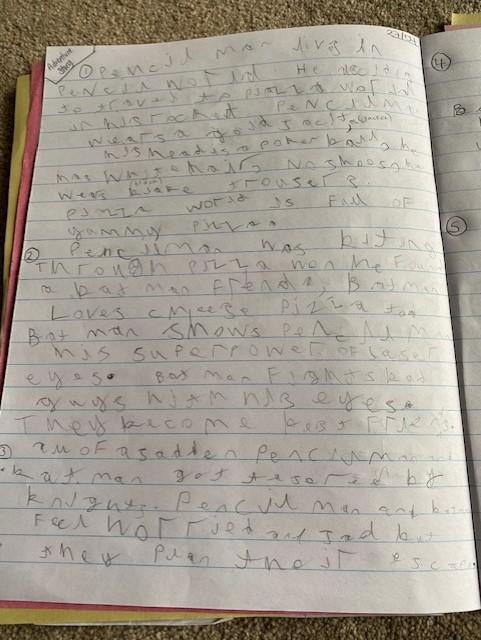 Adventure Story
① Pencil man lives in
Pencil World. He decides
to travel to pizza World
in his rocket. Pencil M
wears a gold Jacit (Jacket)
his head is a poker ball, he
has white hair, No shoos, he
wers blake trousers.
pizza world is Fall OF
yammy pizza.
② Pencilman was biting
Through pizza wen he Found
a bat man Frend. Batman
Loves cheese pizza too
Bat man shows Pencil M
his superpower. of laser
eyes. Bat man Fights bad
guys with his eyes.
They become best Friens.
③ all of a sadden Pencilman
batman got by
knights. Pencil man and
Feel worried and sad but
they plan their escape.
④
B
⑤